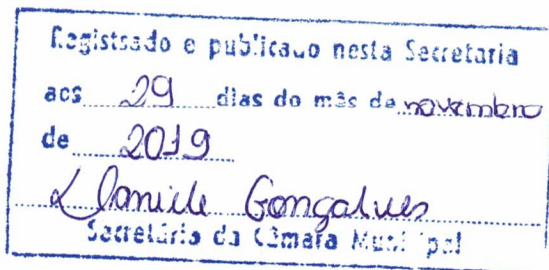 Registrado e publicado nesta Secretaria
aos 29 dias do mês de novembro
de 2019
Daniele Gonçalves
Secretário da Câmara Municipal